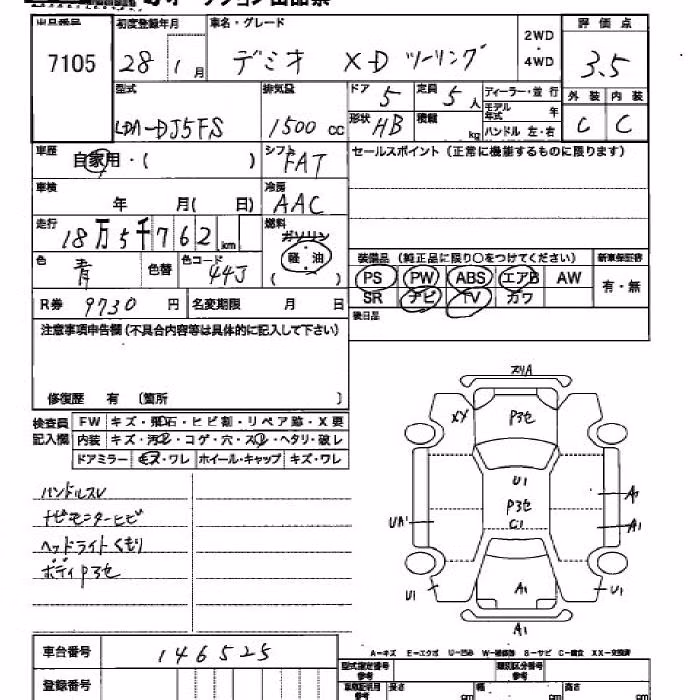 出品番号 初度登録年月 車名・グレード 2WD ・ 4WD 評価点
7105 28 1月 デミオ XD ツーリング 3.5
型式 排気量 ドア 定員 ディーラー・並行 外装 内装
LDA-DJ5FS 1500 cc 5 5人 モデル年式 年 C C
形状 HB 積載 kg ハンドル 左・右
車歴 自家用・( ) シフト FAT セールスポイント (正常に機能するものに限ります)
車検 年 月( 日) 冷房 AAC
走行 18万5千762 km 燃料 ガソリン 軽・油 ( )
色 青 色替 色コード 44J
装備品 (純正品に限り○をつけてください) 新車保証書
PS PW ABS エアB AW 有・無
SR ナビ TV カワ
R券 9730 円 名変期限 月 日 後日品
注意事項申告欄 (不具合内容等は具体的に記入して下さい)
修復歴 有 〔箇所 〕
検査員記入欄 FW キズ・飛石・ヒビ割・リペア跡・X要
内装 キズ・汚れ・コゲ・穴・スレ・ヘタリ・破レ
ドアミラー キズ・ワレ ホイール・キャップ キズ・ワレ
ハンドルスレ
ナビモニターヒビ
ヘッドライトくもり
ボディ P3セ
XX P3セ
U1
P3セ
C1
A1
UA1
A1
U1 A1 U1
A1
A-キズ E-エクボ U-凹み W-補修跡 S-サビ C-腐食 XX-交換済
車台番号 146525
登録番号
型式指定番号 参考 類別区分番号 参考
長さ cm 幅 cm 高さ cm